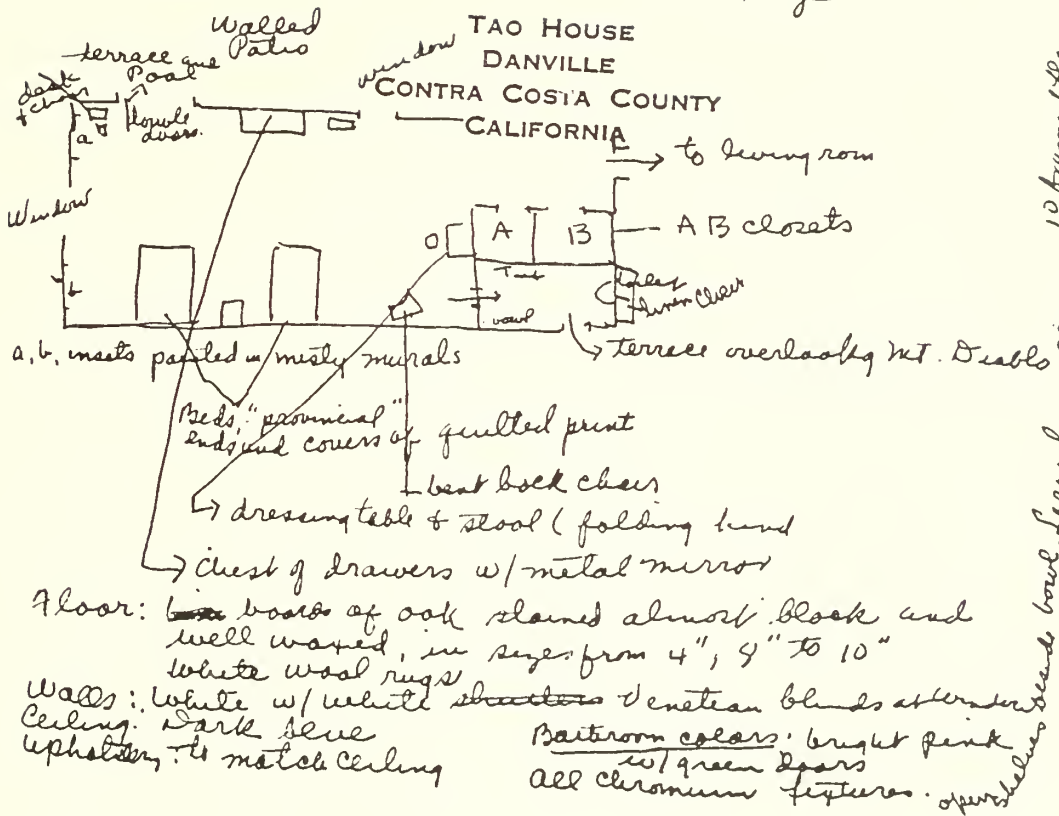 TAO HOUSE
DANVILLE
CONTRA COSTA COUNTY
CALIFORNIA
Walled
Patio
terrace and
Pool
window
desk
+ chair
double
doors.
a
to living room
Window
O
A
B
A B closets
b
Tub
toilet
linen closet
bowl
terrace overlookg Mt. Diablo
a, b, insets painted w/ misty murals
Beds, "provincial"
ends and covers of quilted print
bent back chair
dressing table & stool (folding kind
chest of drawers w/ metal mirror
Floor: boards of oak stained almost black and
well waxed, in sizes from 4", 8" to 10"
White wool rugs
Walls: White w/ white shutters Venetian blinds at windows
Ceiling: Dark blue
Upholstery: to match ceiling
Bathroom colors: bright pink
w/ green doors
all chromium fixtures.
open shelves beside bowl